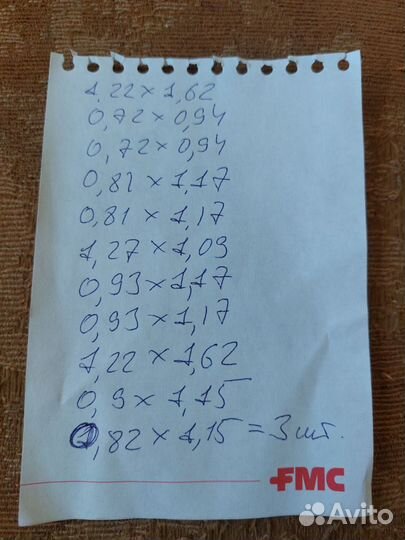 1,22 × 1,62
0,72 × 0,94
0,72 × 0,94
0,81 × 1,17
0,81 × 1,17
1,27 × 1,09
0,93 × 1,17
0,93 × 1,17
1,22 × 1,62
0,9 × 1,15
1,82 × 1,15 = 3 шт.
FMC
Avito